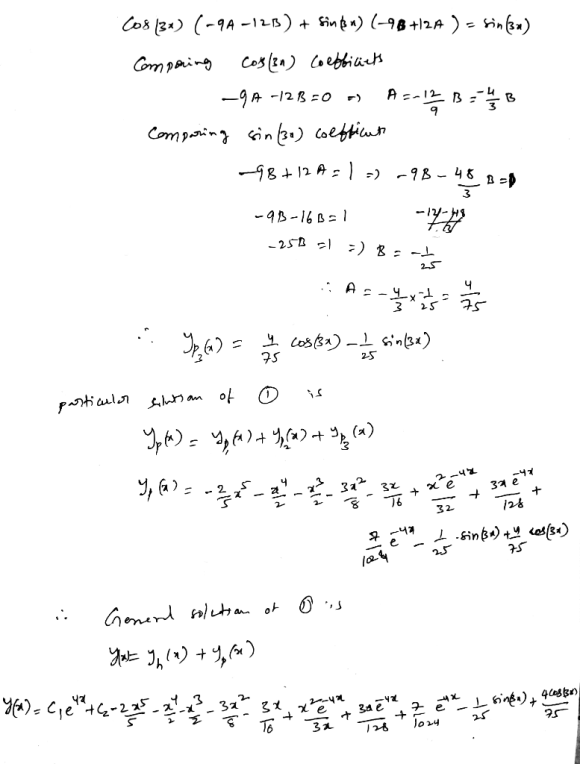 cos(3x) (-9A-12B) + sin(3x) (-9B+12A) = sin(3x)
Comparing cos(3x) coefficients
-9A-12B=0 => A = -12/9 B = -4/3 B
Comparing sin(3x) coefficient
-9B+12A=1 => -9B - 48/3 B = 1
-9B-16B=1
-25B=1 => B = -1/25
∴ A = -4/3 × -1/25 = 4/75
∴ yp3(x) = 4/75 cos(3x) - 1/25 sin(3x)
particular solution of ① is
yp(x) = yp1(x) + yp2(x) + yp3(x)
yp(x) = -2/5 x^5 - x^4/2 - x^3/2 - 3x^2/8 - 3x/16 + x^2 e^-4x/32 + 3x e^-4x/128 +
7/1024 e^-4x - 1/25 · sin(3x) + 4/75 cos(3x)
∴ General solution of ① is
y(x)= yh(x) + yp(x)
y(x) = C1 e^4x + C2 - 2x^5/5 - x^4/2 - x^3/2 - 3x^2/8 - 3x/16 + x^2 e^-4x/32 + 3x e^-4x/128 + 7/1024 e^-4x - 1/25 sin(3x) + 4cos(3x)/75